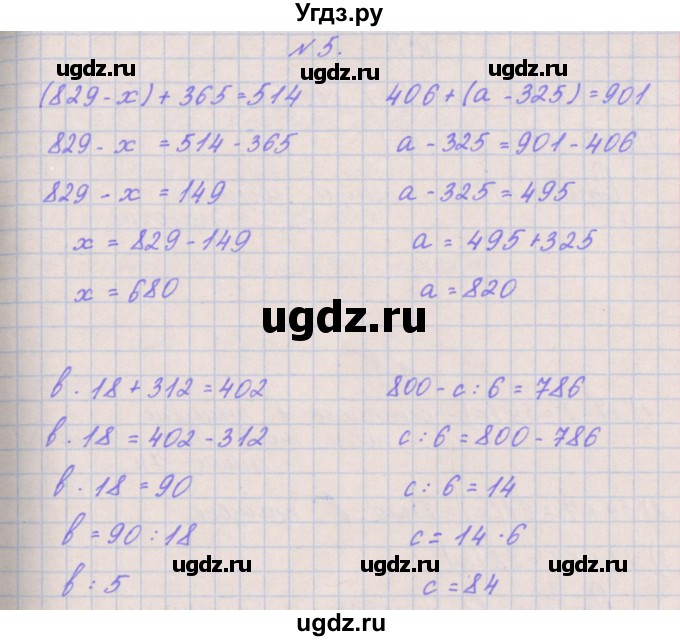 Угдз.ру
№5.
ugdz.ru ugdz.ru
(829-x)+365=514
406+(a-325)=901
829-x=514-365
a-325=901-406
829-x=149
a-325=495
x=829-149
a=495+325
x=680
a=820
ugdz.ru
в·18+312=402
800-c:6=786
в·18=402-312
c:6=800-786
в·18=90
c:6=14
в=90:18
c=14·6
ugdz.ru ugdz.ru
в:5
c=84
ugdz.ru